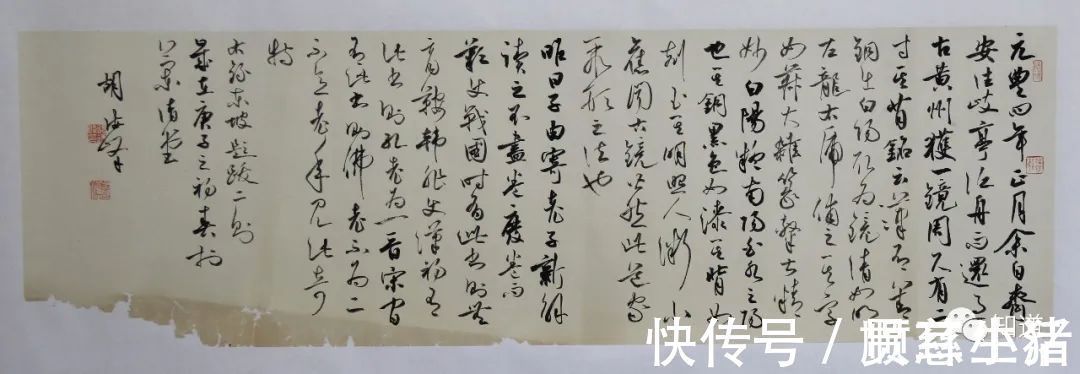 元豐四年正月余自齊
安往岐亭泛舟而還過
古黄州獲一鏡周尺有二
寸其背銘云漢有善
銅出白陽取為鏡清如明
左龍右虎俌之其字
如菽大雜篆隸甚精
妙白陽疑南陽白水之陽
也其銅黑色如漆其背如
刻玉其明照人微小
舊聞古鏡皆然此道家
聚形之法也
昨日子由寄老子新解
讀之不盡卷廢卷而
歎使戰國時有此書則無
商鞅韓非使漢初有
此書則孔老為一晋宋間
有此書則佛老不為二
不意老年見此奇
特
右録東坡題跋二則
歲在庚子之初春於
清堂
胡
快传号 /